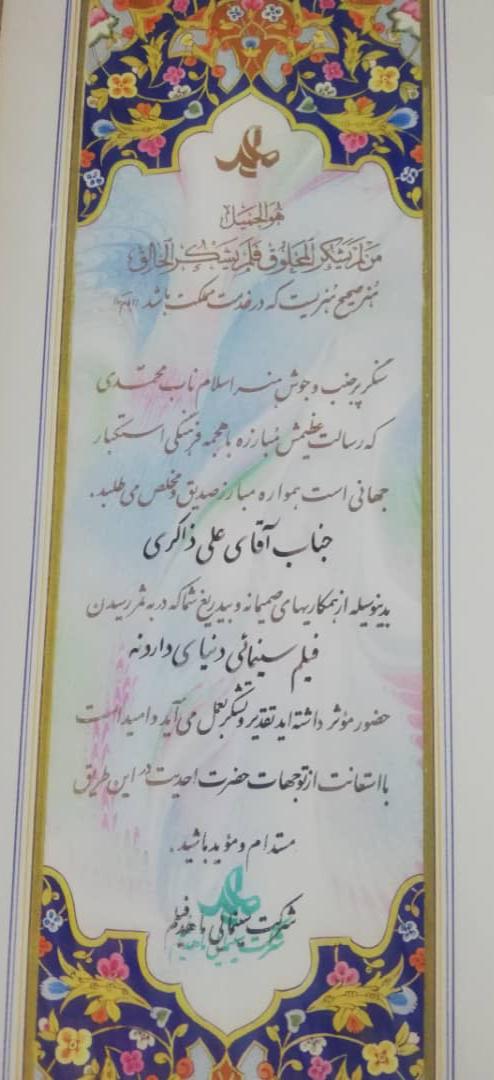 هو الجمیل
من لم یشکر المخلوق فلم یشکر الخالق
هنر صحیح هنریست که در خدمت مملکت باشد
سنگر پر جنب و جوش هنر اسلام ناب محمدی
که رسالت عظیمش مبارزه با هجمه فرهنگی استکبار
جهانی است همواره مبارز صدیق و مخلص می طلبد.
جناب آقای علی ذاکری
بدینوسیله از همکاریهای صمیمانه و بیدریغ شما که در به ثمر رسیدن
فیلم سینمائی دنیای وارونه
حضور مؤثر داشته اید تقدیر و تشکر بعمل می آید و امید است
با استعانت از توجهات حضرت احدیت در این طریق
مستدام و مؤید باشید.
شرکت سینمائی هدیه فیلم